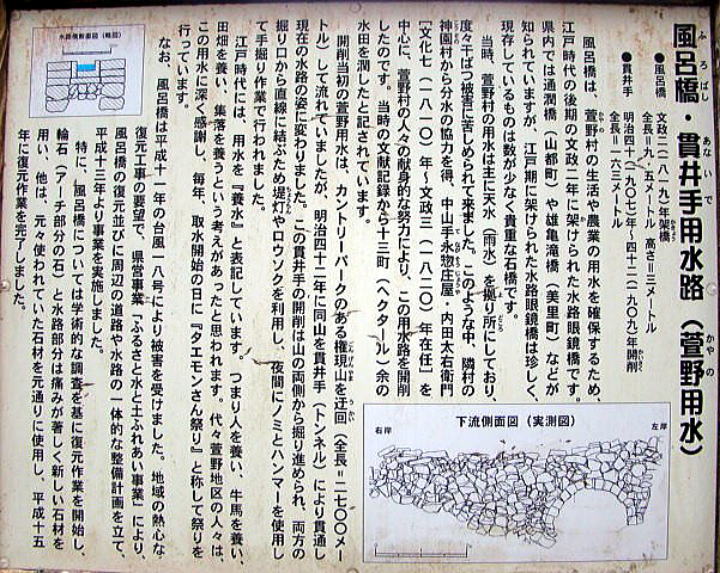 風呂橋・貫井手用水路（萱野用水）
ふろばし
あないで
かやの
●風呂橋　文政二（一八一九）年架橋
かきょう
全長＝九・五メートル　高さ＝三メートル
●貫井手　明治四十（一九〇七）年〜四十二（一九〇九）年開削
かいさく
全長＝一六三メートル
風呂橋は、萱野村の生活や農業の用水を確保するため、
江戸時代の後期の文政二年に架けられた水路眼鏡橋です。
県内では通潤橋（山都町）や雄亀滝橋（美里町）などが
知られていますが、江戸期に架けられた水路眼鏡橋は珍しく、
現存しているものは数が少なく貴重な石橋です。
当時、萱野村の用水は主に天水（雨水）を拠り所にしており、
度々干ばつ被害に苦しめられて来ました。このような中、隣村の
神園村から分水の協力を得、中山手永惣庄屋・内田太右衛門
［文化七（一八一〇）年〜文政三（一八二〇）年在任］を
中心に、萱野村の人々の献身的な努力により、この用水路を開削
したのです。当時の文献記録から十三町（ヘクタール）余の
水田を潤したと記されています。
開削当初の萱野用水は、カントリーパークのある権現山を迂回（全長＝二七〇〇メー
トル）して流れていましたが、明治四十二年に同山を貫井手（トンネル）により貫通し
現在の水路の姿に変わりました。この貫井手の開削は山の両側から掘り進められ、両方の
掘り口から直線に結ぶため提灯やロウソクを利用し、夜間にノミとハンマーを使用し
て手掘り作業で行われました。
江戸時代には、用水を『養水』と表記しています。つまり人を養い、牛馬を養い、
田畑を養い、集落を養うという考えがあったと思われます。代々萱野地区の人々は、
この用水に深く感謝し、毎年、取水開始の日に『タエモンさん祭り』と称して祭りを
行っています。
なお、風呂橋は平成十一年の台風一八号により被害を受けました。地域の熱心な
復元工事の要望で、県営事業「ふるさと水と土ふれあい事業」により、
風呂橋の復元並びに周辺の道路や水路の一体的な整備計画を立て、
平成十三年より事業を実施しました。
特に、風呂橋については学術的な調査を基に復元作業を開始し、
輪石（アーチ部分の石）と水路部分は痛みが著しく新しい石材を
用い、他は、元々使われていた石材を元通りに使用し、平成十五
年に復元作業を完了しました。
水路側断面図（略図）
下流側面図（実測図）
右岸
左岸